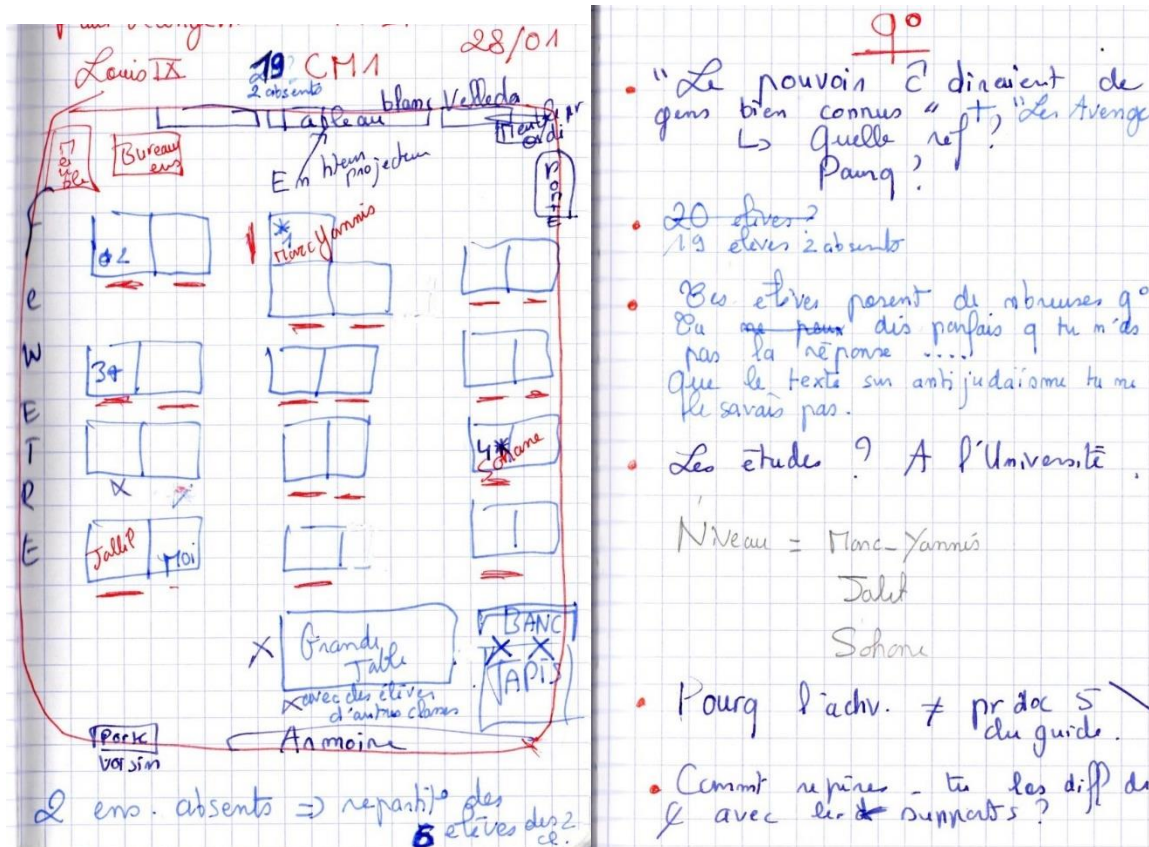 Louis IX
19 CM1
28/01
2 absents
blanc Velleda
tableau
Meuble
Bureau
ens
En
projecteur
Entrée
* 1
Marc Yannis
2
3
4*
Sohane
FENETRE
Jalil
Moi
Grande
Table
avec des élèves
d'autres classes
BANC
TAPIS
Porte
Armoire
2 ens. absents => repartit° des
5 élèves des 2
cl.
q°
"Le pouvoir
gens bien connus" + "Les Avenge
↳ Quelle ref ?
Pourq ?
20 élèves ?
19 élèves 2 absents
Les élèves posent de nbreuses q°
Tu ne peux dis parfois q tu n'as
pas la réponse ....
Que le texte sur antijudaïsme tu ne
le savais pas.
Les études ? A l'Université.
Niveau = Marc-Yannis
Jalil
Sohane
Pourq l'activ. ≠ pr doc 5
du guide.
Commt repères-tu les diff
avec les supports ?